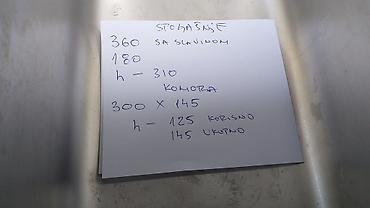 SPOLJAŠNJE
360 SA SLAVINOM
180
h - 310
KOMORA
300 x 145
h - 125 KORISNO
145 UKUPNO